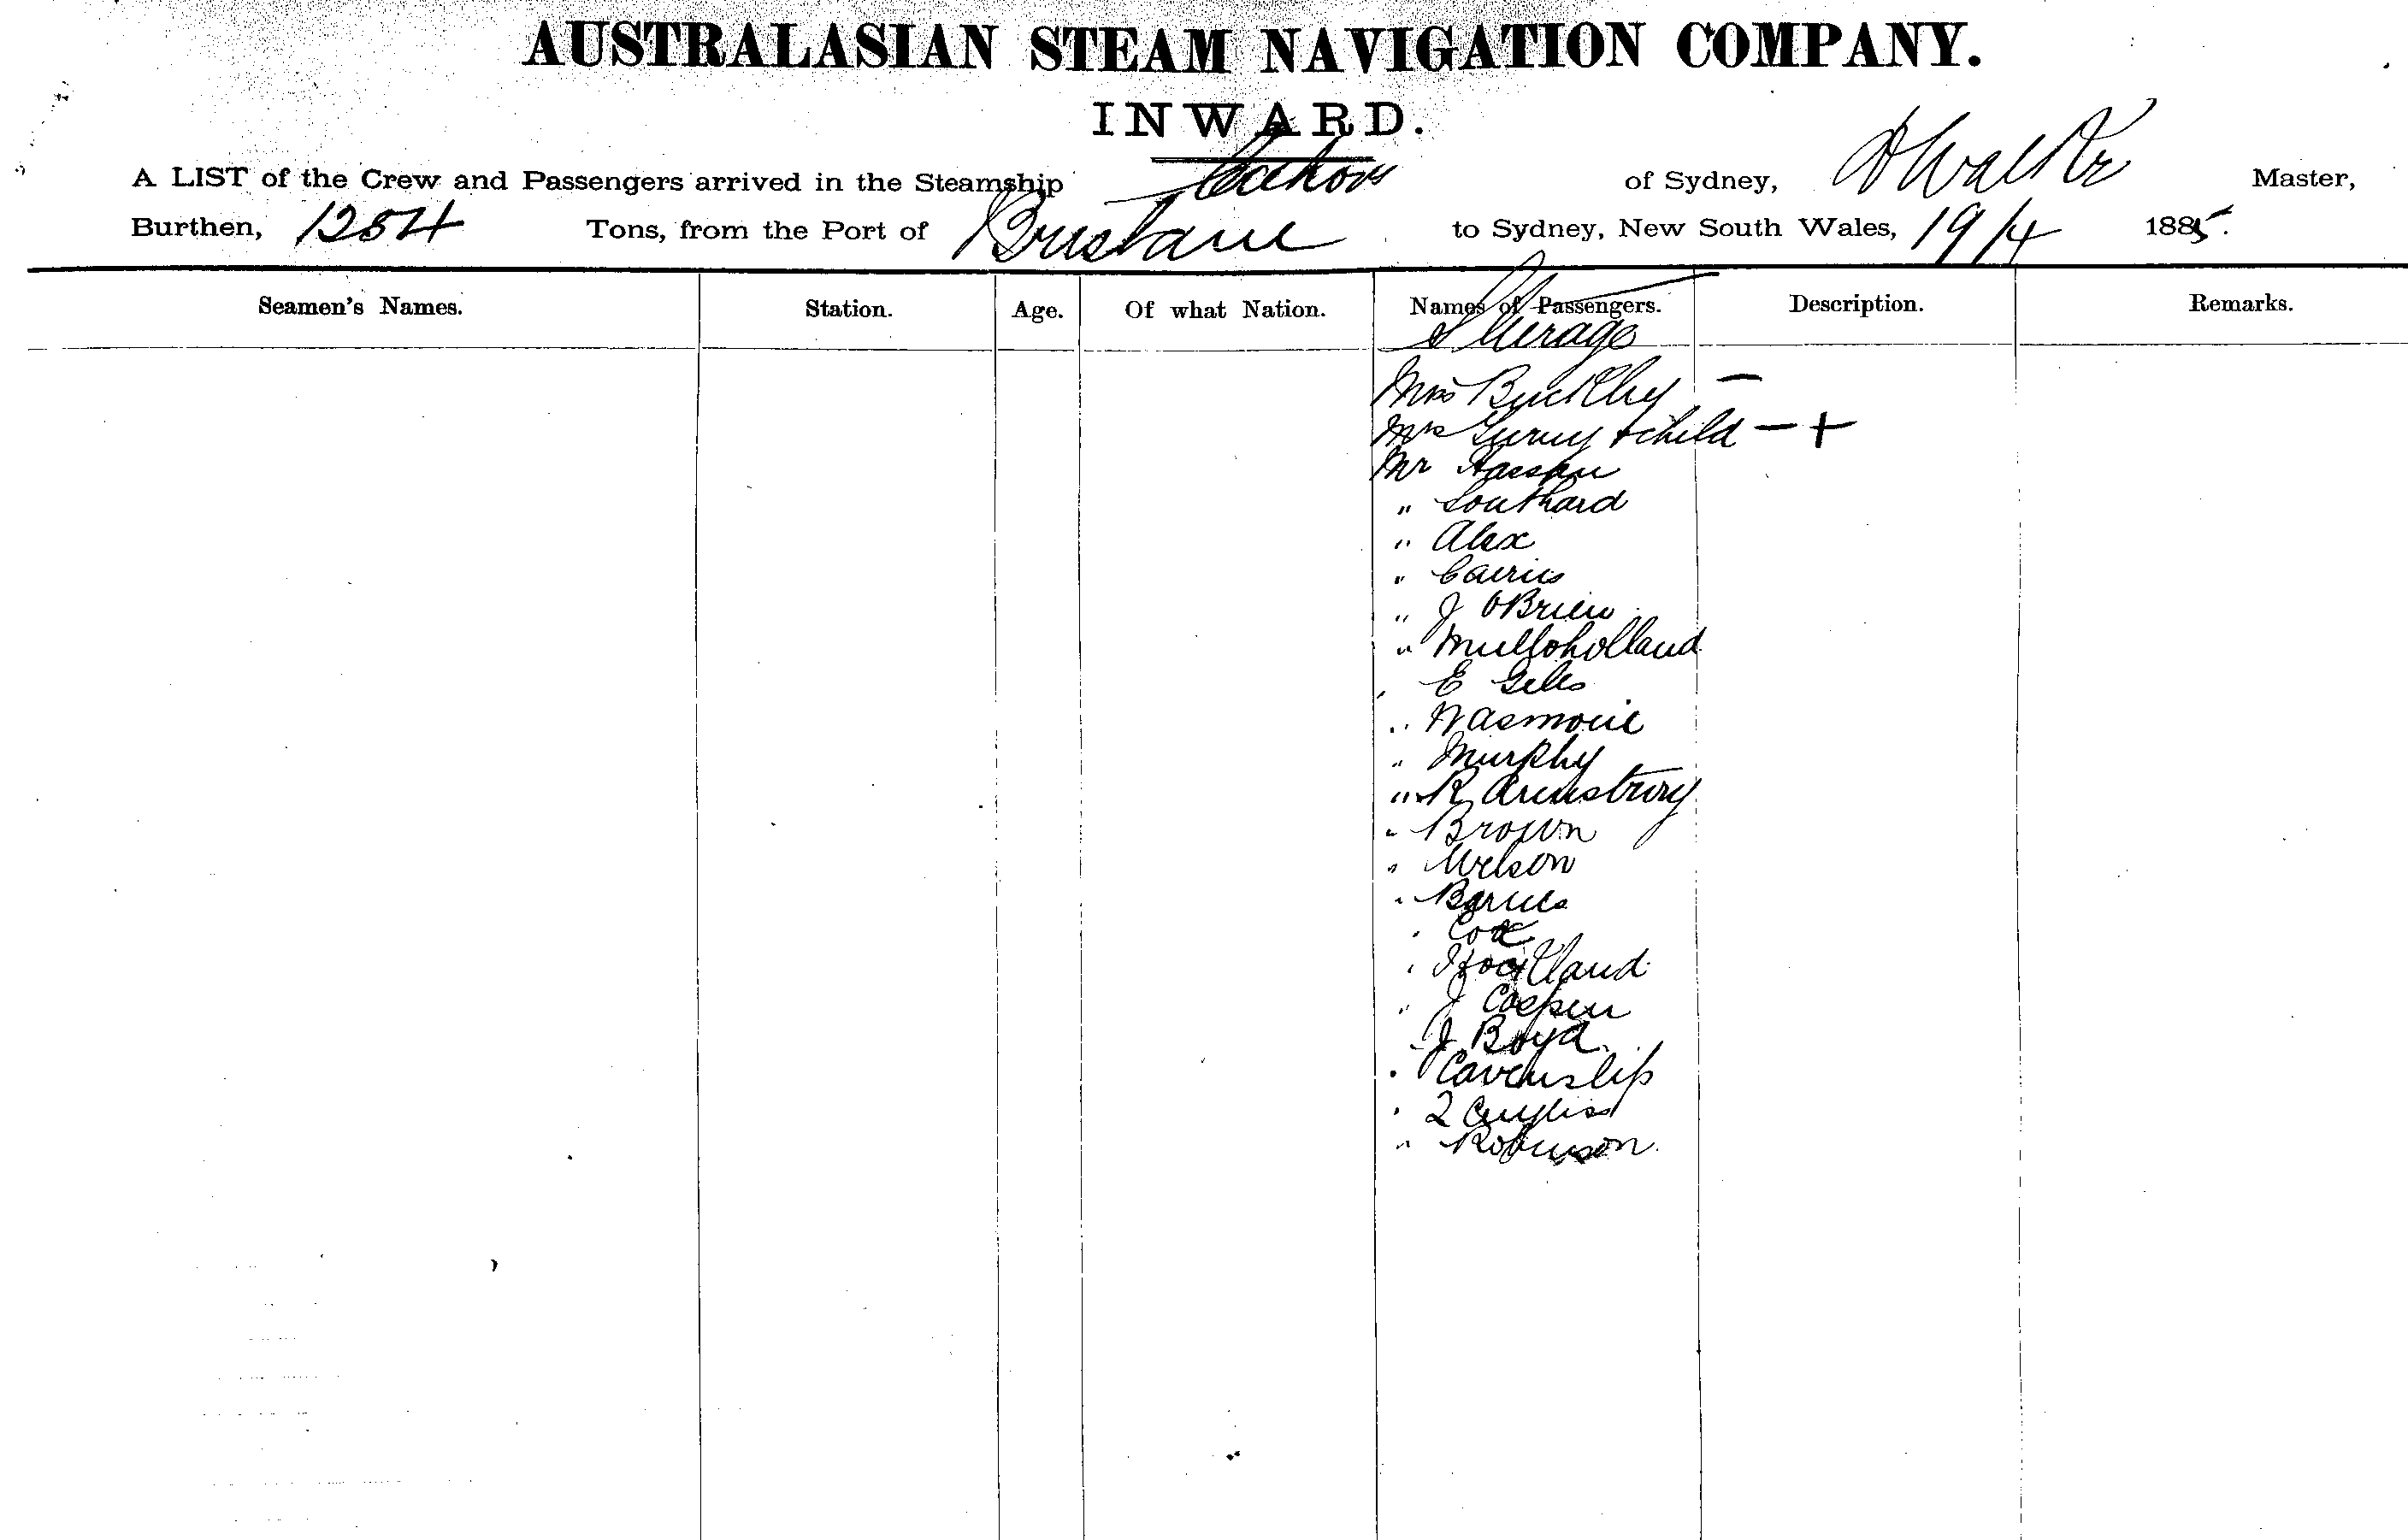 AUSTRALASIAN STEAM NAVIGATION COMPANY.
INWARD.
A LIST of the Crew and Passengers arrived in the Steamship of Sydney, Walker Master,
Burthen, 1254 Tons, from the Port of Brisbane to Sydney, New South Wales, 19/4 1885.
Seamen's Names. Station. Age. Of what Nation. Names of Passengers. Description. Remarks.
Steerage
Buckley —
Mrs & child — +
Mr
" Southard
" Alex
" Cairns
" J OBrien
" Mulloholland
, E Giles
"
" Murphy
" R Armstrong
" Brown
" Wilson
" Barnes
" Cox
"
" J
" J Boyd
"
" 2
" Robinson